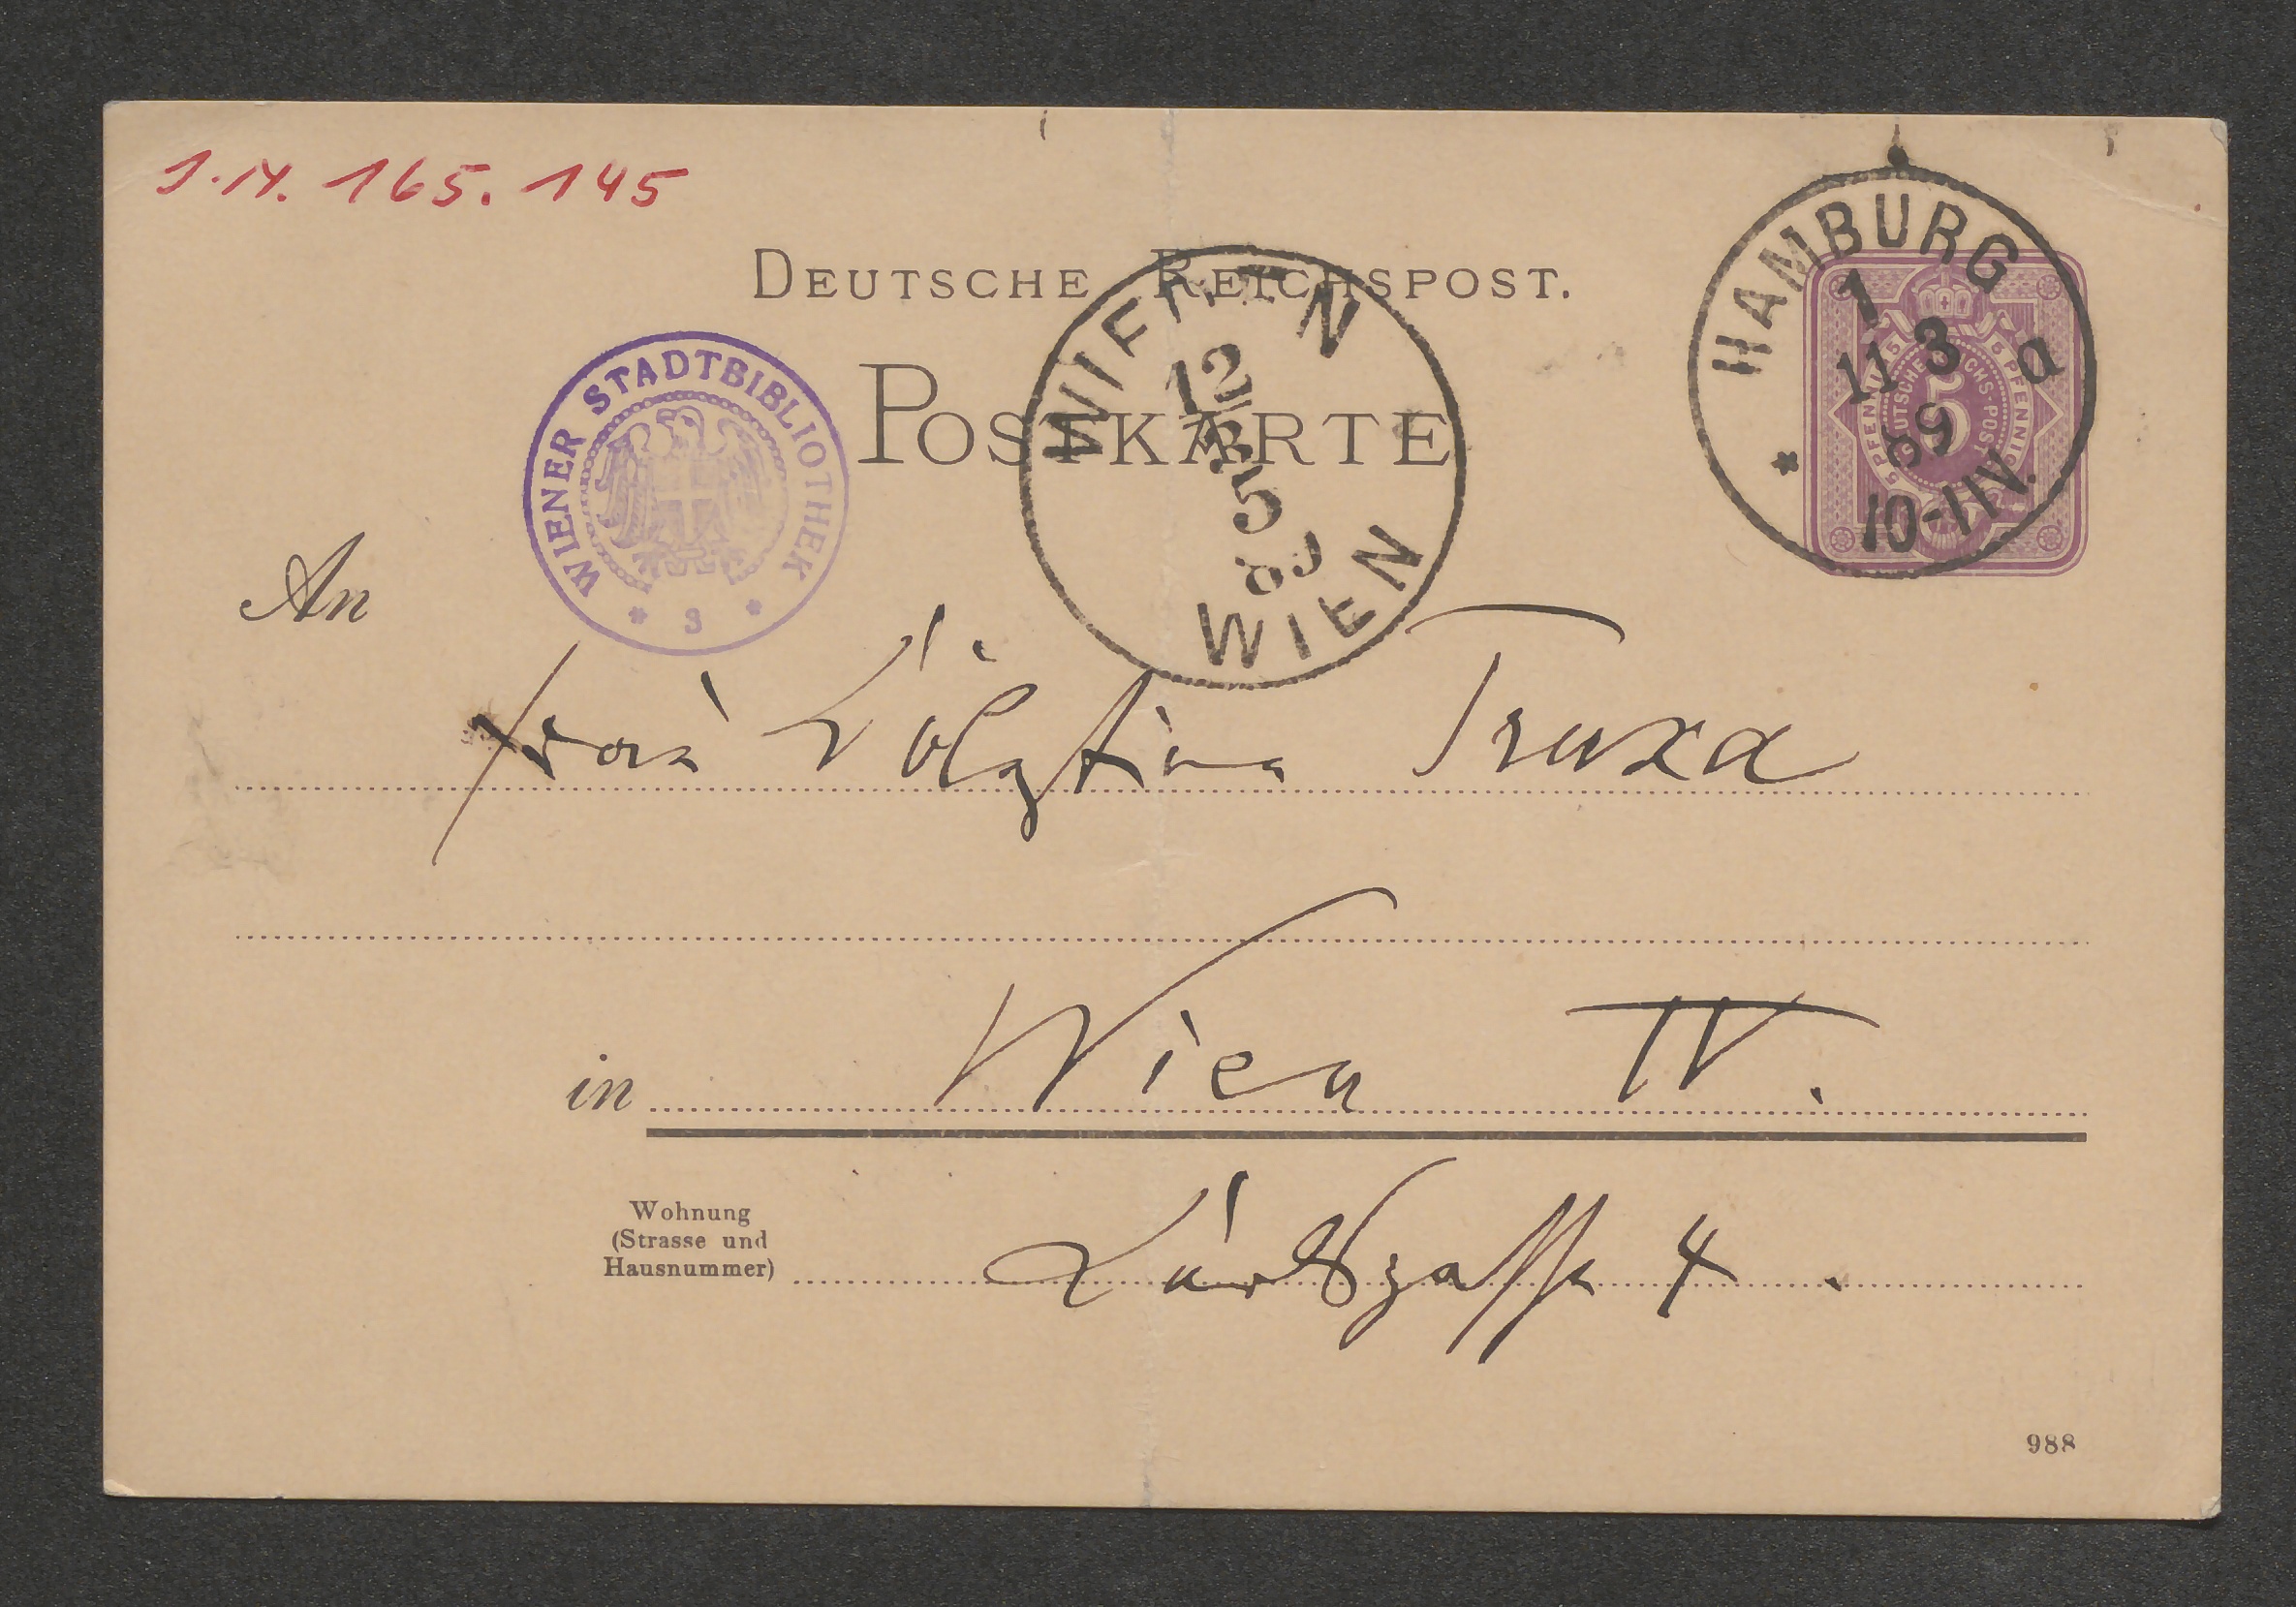 J.N. 165.145
DEUTSCHE REICHSPOST.
POSTKARTE
WIENER STADTBIBLIOTHEK
* 3 *
WIEN
12
3
5
89
WIEN
HAMBURG
1
11 3
a
89
10-11N.
*
DEUTSCHE REICHS-POST
5 PFENNIG
5
An
Frau Cölestine Truxa
in Wien IV.
Wohnung
(Strasse und
Hausnummer)
Carlsgasse 4.
988